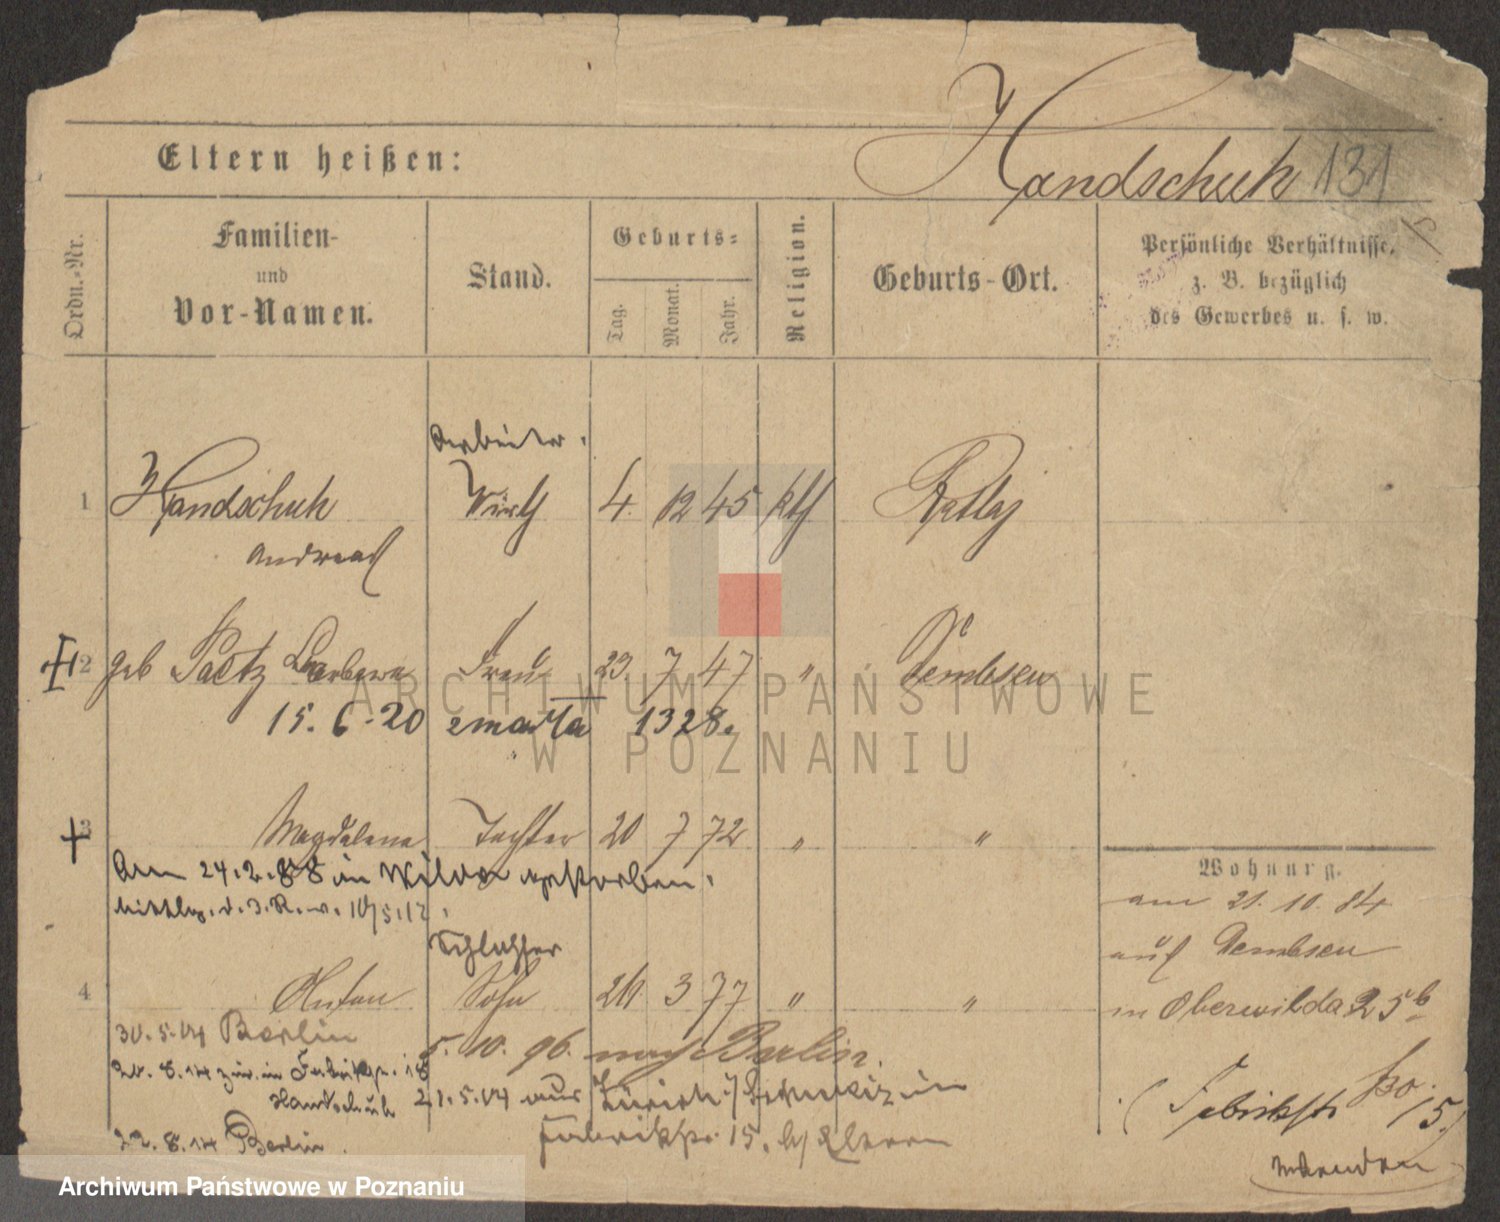 Handschuh 131
Eltern heißen:
Ordn.-Nr.
Familien-
und
Vor-Namen.
Stand.
Geburts-
Tag.
Monat.
Jahr.
Religion.
Geburts-Ort.
Persönliche Verhältnisse,
z. B. bezüglich
des Gewerbes u. s. w.
Arbeiter.
1 Handschuh Wirth 4. 12 45 kth Rattaj
Andreas
2 geb Paetz Barbara Frau 23. 7 47 " Dembsen
15.6.-20 zmarła 1328.
3 Magdalena Tochter 20 7 72 " "
Am 24.2.88 in Wilda gestorben.
Wohnung.
am 21. 10. 84
auf Dembsen
in Oberwilda 25b
Schlosser
4 Anton Sohn 3 77 " "
30.5.14 Berlin
5. 10. 96. nach Berlin.
20.8.14 zur. in Fabrikstr. 18
Handschuh
21.5.14 aus Zürich / Schweiz in
Fabrikstr. 15. b/ Eltern
22.8.14 Berlin.
(Fabrikstr. 15.)
ARCHIWUM PAŃSTWOWE
W POZNANIU
Archiwum Państwowe w Poznaniu